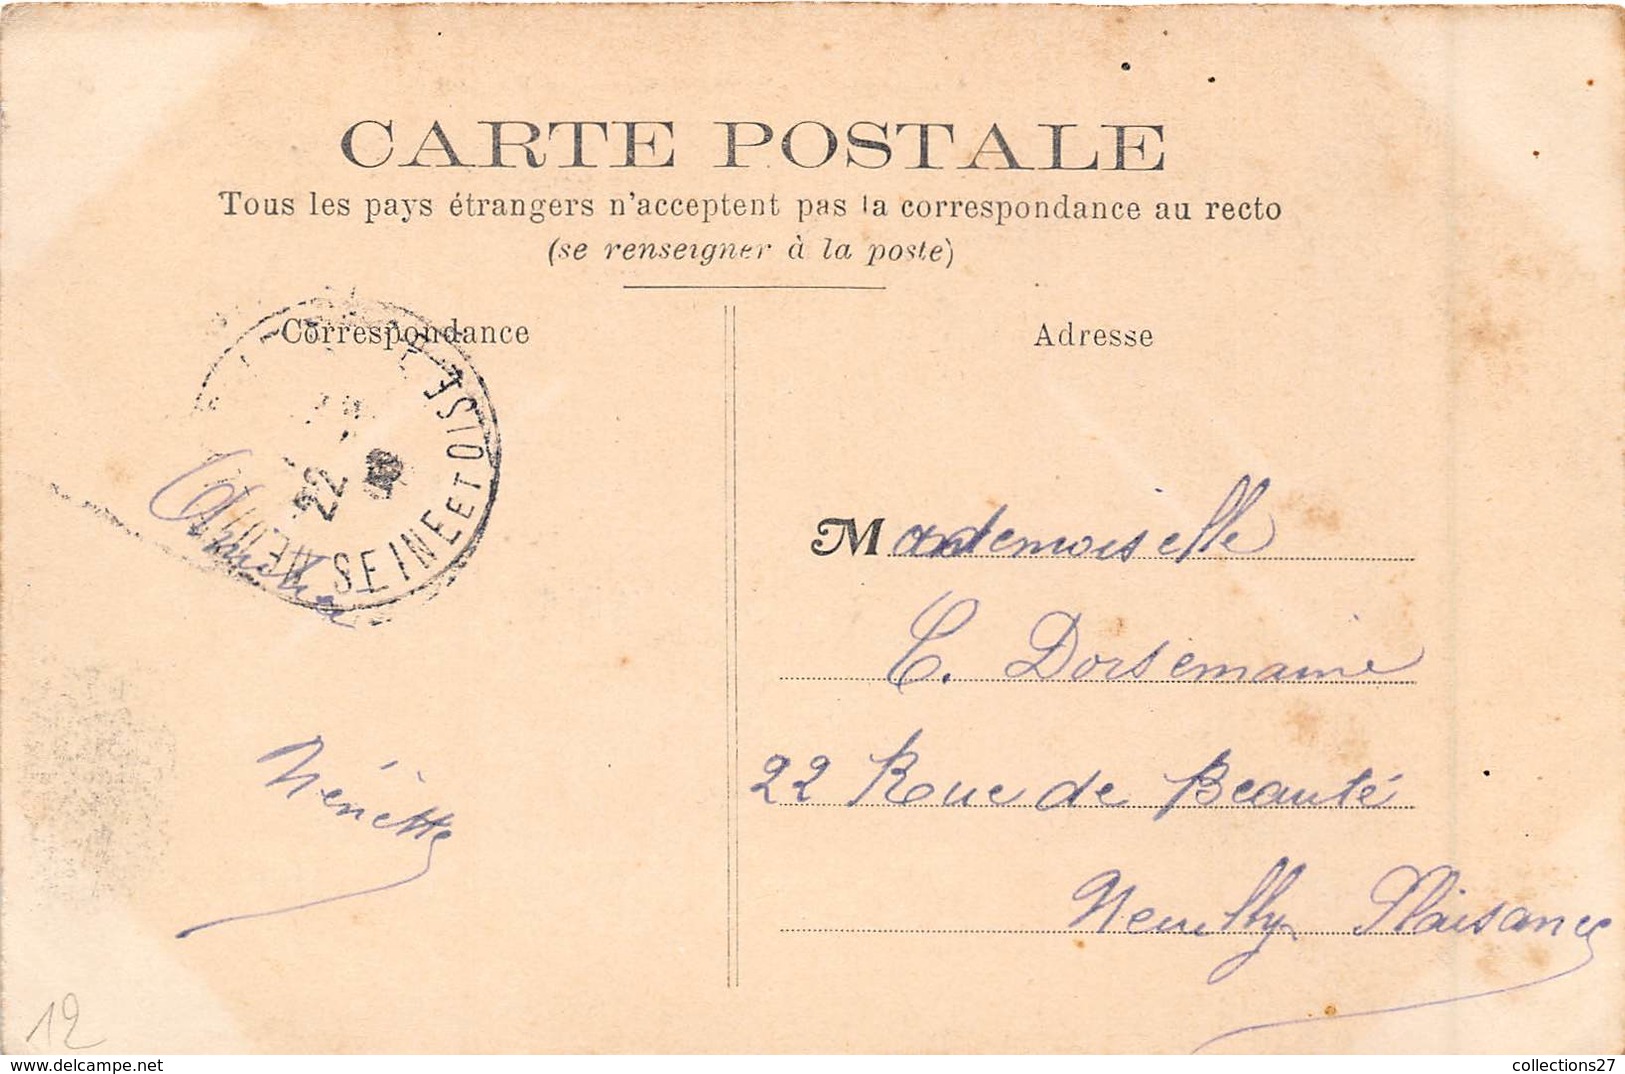 CARTE POSTALE
Tous les pays étrangers n'acceptent pas la correspondance au recto
(se renseigner à la poste)
Correspondance
Adresse
SEINE ET OISE
22
Amitiés
Nénette
Mademoiselle
C. Dorsemaine
22 Rue de Beauté
Neuilly Plaisance
12
delcampe.net
collections27